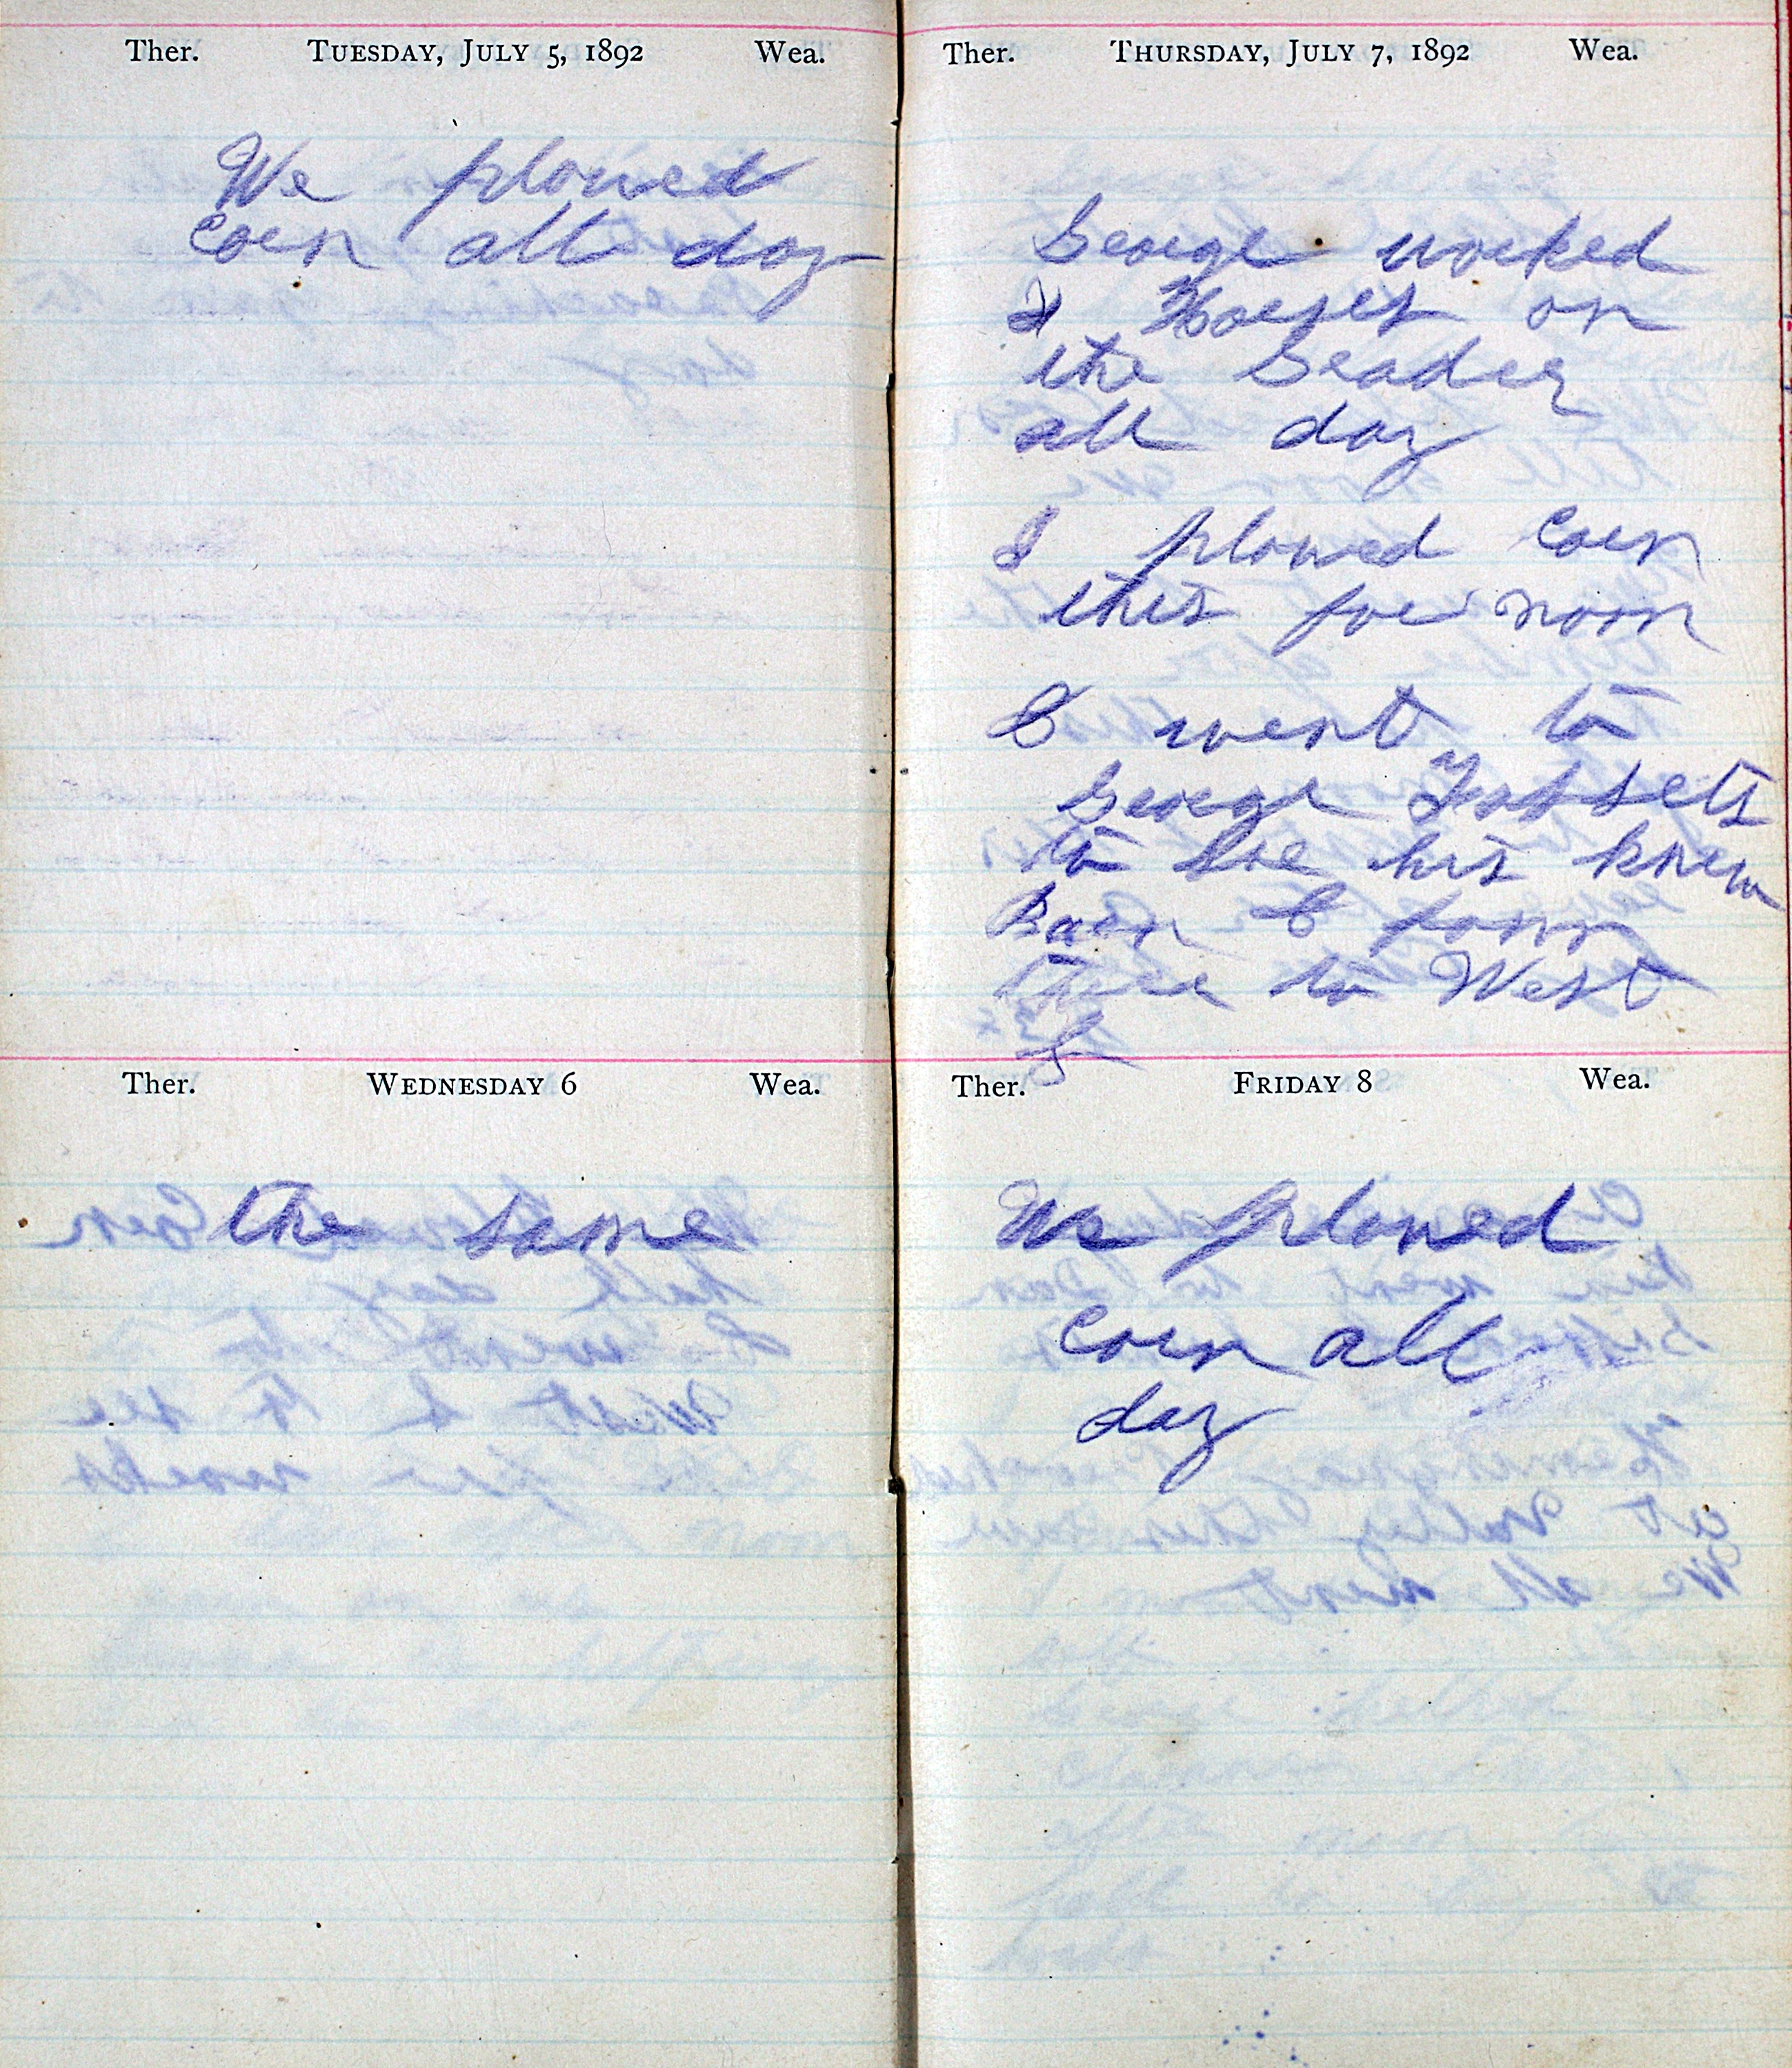 Ther. TUESDAY, JULY 5, 1892 Wea.
We plowed
corn all day
Ther. WEDNESDAY 6 Wea.
the same
Ther. THURSDAY, JULY 7, 1892 Wea.
George worked
Horses on
the Grader
all day
I plowed corn
this for noon
I went to
George
to see his knew
Barn & from
there to West
L
Ther. FRIDAY 8 Wea.
We plowed
corn all
day